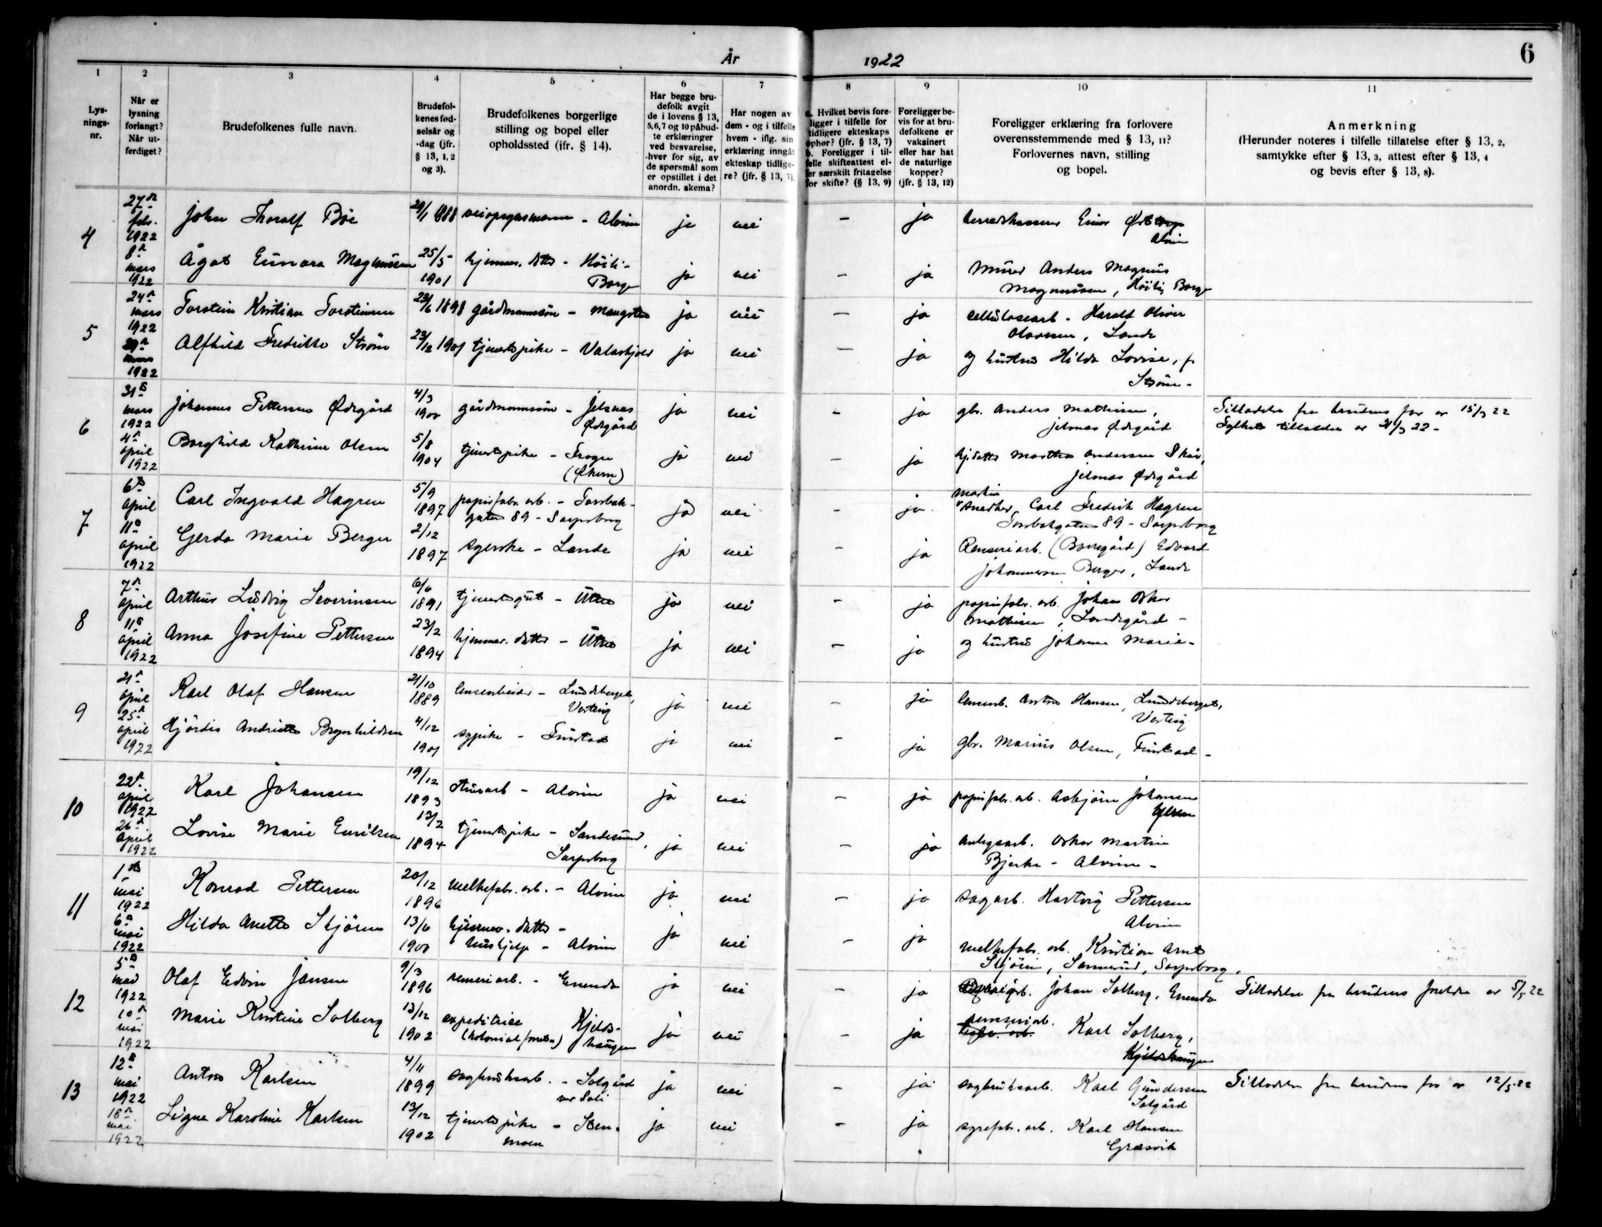 År
1922
6
1 2 3 4 5 6 7 8 9 10 11
Lys-
nings-
nr.
Når er
lysning
forlangt?
Når ut-
ferdiget?
Brudefolkenes fulle navn.
Brudefol-
kenes fød-
selsår og
-dag (jfr.
§ 13, 1, 2
og 3).
Brudefolkenes borgerlige
stilling og bopel eller
opholdssted (jfr. § 14).
Har begge bru-
defolk avgit
de i lovens § 13,
5,6,7 og 10 påbud-
te erklæringer
ved besvarelse,
hver for sig, av
de spørsmål som
er opstillet i det
anordn. skema?
Har nogen av
dem - og i tilfelle
hvem - iflg. sin
erklæring inngåt
ekteskap tidlige-
re? (jfr. § 13, 7).
a. Hvilket bevis fore-
ligger i tilfelle for
tidligere ekteskaps
ophør? (jfr. § 13, 7)
b. Foreligger i til-
felle skifteattest el-
ler særskilt fritagelse
for skifte? (§ 13, 9)
Foreligger be-
vis for at bru-
defolkene er
vaksinert
eller har hat
de naturlige
kopper?
(jfr. § 13, 12)
Foreligger erklæring fra forlovere
overensstemmende med § 13, 11?
Forlovernes navn, stilling
og bopel.
Anmerkning
(Herunder noteres i tilfelle tillatelse efter § 13, 2,
samtykke efter § 13, 3, attest efter § 13, 4
og bevis efter § 13, 8).
4
27de
febr.
1922
John Thoralf Bøe
1888
Alvim
ja nei – ja
Einar
Alvim
8de
mars
1922
Ågot Gunara Magnussen
25/5
1901
hjemmev. datter – Høili-
Borge
ja nei – ja
Murer Anders Magnus
Magnussen, Høili, Borge
5
24de
mars
1922
Torstein Kristian Torstensen
1898 gårdmannssøn –
ja nei – ja
cellulosearb. Harald Oliver
Olaussen, Lande
1922
Alfhild Fredrikke Strøm
23/12 1901 tjenestepike –
ja nei – ja
og hustru Hilda Lovise, f.
Strøm –
6
31te
mars
1922
Johannes Pettersen Ødegård
4/3
1900
gårdmannssøn – Jelsnes
Ødegård
ja nei – ja
gbr. Anders Mathisen,
Jelsnes Ødegård
Tilladelse fra brudens far er 15/3 22
Fylkets tilladelse er 21/3 22 –
4de
april
1922
Borghild Kathrine Olsen
5/8
1904
tjenestepike – Trogne
(Økern)
ja nei – ja
hj. datter Martha Andersen
Jelsnes Ødegård
7
6te
april
Carl Ingvald Hagren
5/9
1897
papirfabr. arb. – Torsbek-
gaten 89 – Sarpsborg
ja nei – ja
Martin
Snedker, Carl Fredrik Hagren
Torsbekgaten 89 – Sarpsborg
11te
april
1922
Gerda Marie Berger
2/12
1897
syerske – Lande
ja nei – ja
Renseriarb. (Borregård) Edvard
Johannessen Berger, Lande
8
7de
april
Arthur Ludvig Severinsen
6/6
1891
tjenestegut – Utne
ja nei – ja
papirfabr. arb. Johan Oskar
Mathisen, Landegård –
11te
april
1922
Anna Josefine Pettersen
23/2
1894
hjemmev. datter – Utne
ja nei – ja
og hustru Johanne Marie –
9
21de
april
Karl Olaf Hansen
21/10
1889
lensearbeider – Lundeberget,
Varteig
ja nei – ja
lensearb. Anton Hansen, Lundeberget,
Varteig
25de
april
1922
Hjördis Andrette Brynhildsen
4/12
1901
sypike – Furstad
ja nei – ja
gbr. Marius Olsen, Furstad –
10
22de
april
1922
Karl Johansen
19/12
1893
stuearb – Alvim
ja nei – ja
papirfabr. arb. Asbjørn Johansen
26de
april
1922
Lovise Marie Emilsen
13/2
1894
tjenestepike – Sandesund,
Sarpsborg
ja nei – ja
anlegsarb. Oskar Martin
Bjerke – Alvim –
11
1ste
mai
1922
Konrad Pettersen
20/12
1896
melkefabr. arb. – Alvim
ja nei – ja
sagarb. Hartvig Pettersen
Alvim
6te
mai
1922
Hilda Anette Skjøren
13/6
1900
hjemmev. datter –
hushjelp – Alvim
ja nei – ja
melkefabr. arb. Kristian Arnt
Skjøren, Sannesund, Sarpsborg.
12
5te
mai
1922
Olaf Edvin Jansen
9/3
1896
renseriarb. – Enenda
ja nei – ja
arb. Johan Solberg, Enenda
Tilladelse fra brudens foreldre er 5/5 22
10de
mai
1922
Marie Kristine Solberg
13/12
1902
expeditrice
(kolonial/)
Kjelds-
haugen
ja nei – ja
renseriarb.
Karl Solberg,
Kjeldshaugen
13
12te
mai
1922
Anton Karlsen
4/11
1899
sagbruksarb. – Solgård
ved Soli
ja nei – ja
sagbruksarb. Karl Gundersen
Solgård
Tilladelse fra brudens far er 12/5 22
18de
mai
1922
Signe Karoline Karlsen
13/12
1902
tjenestepike – Sten-
moen
ja nei – ja
syrefabr. arb. Karl Hansen
Græsvik